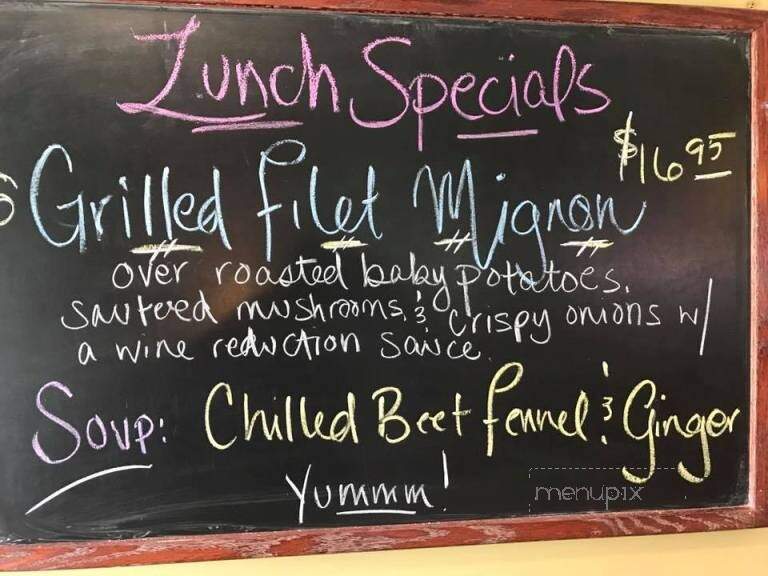 Lunch Specials
$16 95
Grilled Filet Mignon
over roasted baby potatoes,
sauteed mushrooms, & crispy onions w/
a wine reduction sauce.
Soup: Chilled Beet Fennel & Ginger
Yummm!
menupix